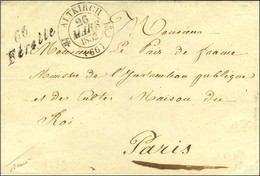 66
Ferrette
ALTKIRCH
26
MARS
(66)
Monsieur
Monsieur Le Pair de france
Ministre de l'Instruction publique
et des Cultes Maison du
Roi
Paris